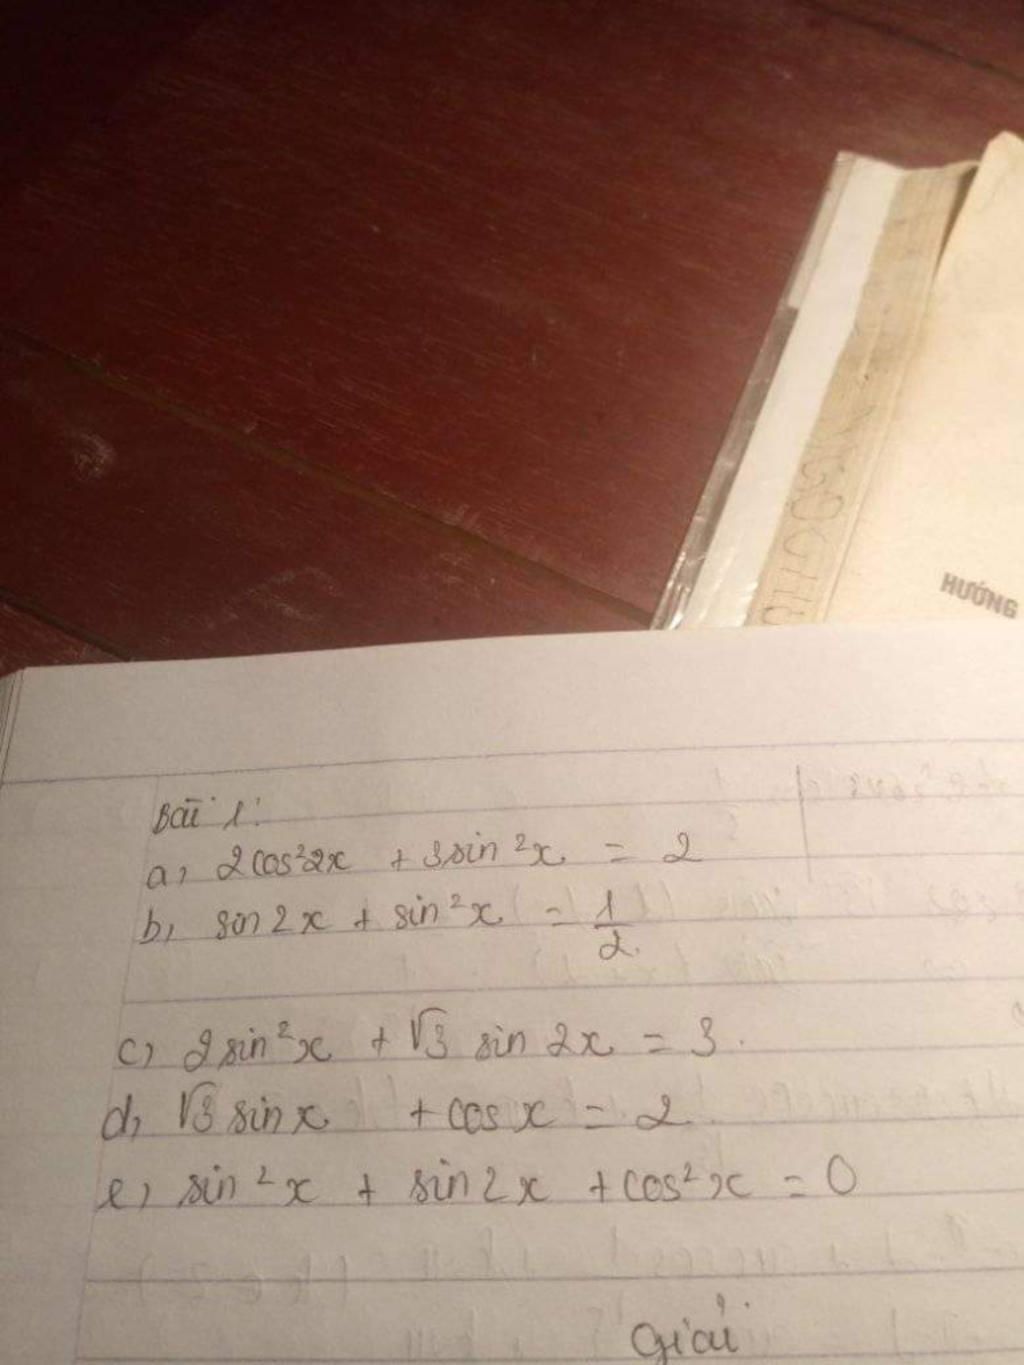 HƯỚNG
Bài 1:
a, 2cos²2x + 3sin²x = 2
b, sin 2x + sin²x = 1/2
c, 2sin²x + √3 sin 2x = 3.
d, √3 sin x + cos x = 2
e, sin²x + sin 2x + cos²x = 0
Giải